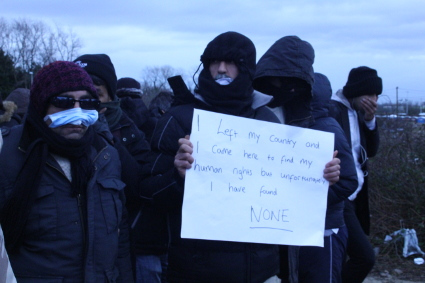 I Left my Country and
I Came here to find my
human rights but unfortunately
I have found
NONE